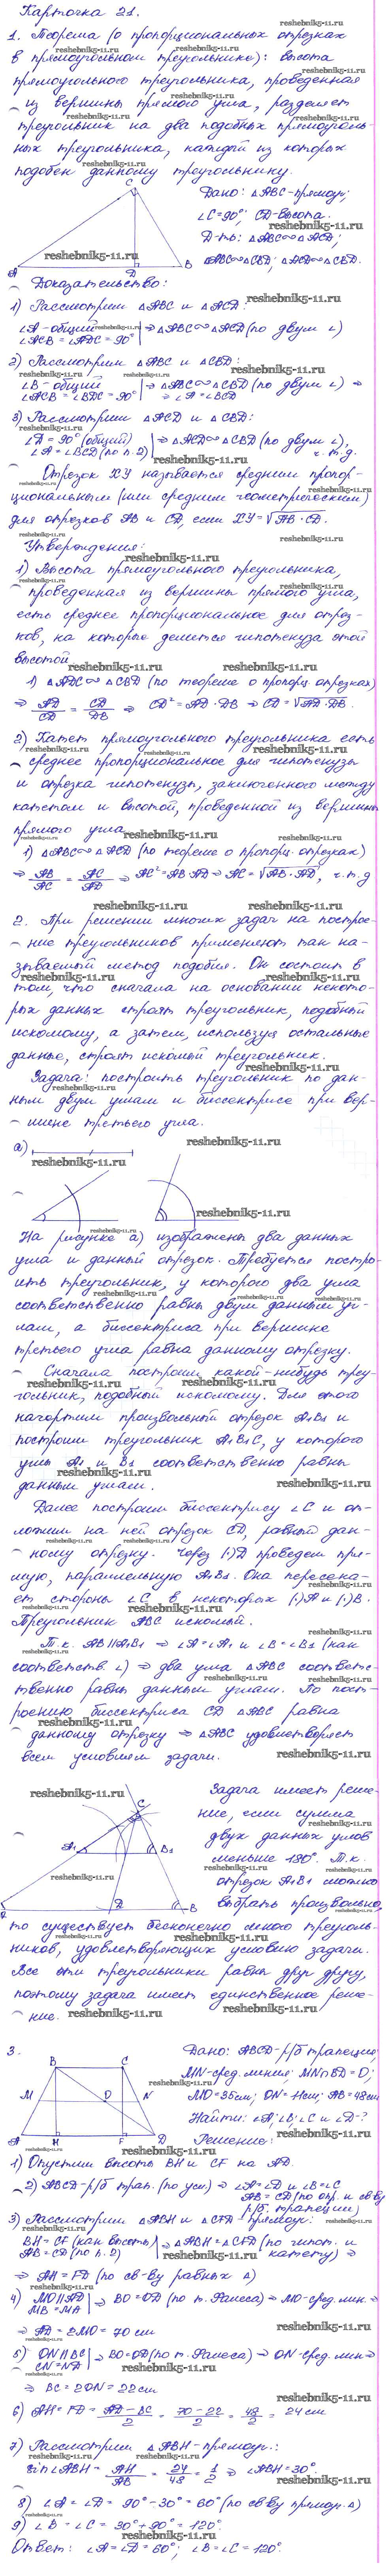 Карточка 21.
1. Теорема (о пропорциональных отрезках
в прямоугольном треугольнике): высота
прямоугольного треугольника, проведенная
из вершины прямого угла, разделяет
треугольник на два подобных прямоуголь-
ных треугольника, каждый из которых
подобен данному треугольнику.
Дано: △ABC-прямоуг;
∠C=90°, CD-высота.
Д-ть: △ABC∾△ACD;
△ABC∾△CBD; △ACD∾△CBD.
Доказательство:
1) Рассмотрим △ABC и △ACD:
∠A-общий | ⇒△ABC∾△ACD(по двум ∠)
∠ACB=∠ADC=90°
2) Рассмотрим △ABC и △CBD:
∠B-общий | ⇒△ABC∾△CBD(по двум ∠) ⇒
∠ACB=∠BDC=90° ⇒ ∠A=∠BCD
3) Рассмотрим △ACD и △CBD:
∠D=90° (общий) | ⇒△ACD∾△CBD(по двум ∠),
∠A=∠BCD(по п.2) ч.т.д.
Отрезок XY называется средним пропор-
циональным (или средним геометрическим)
для отрезков AB и CD, если XY=√AB·CD.
Утверждения:
1) Высота прямоугольного треугольника,
проведенная из вершины прямого угла,
есть среднее пропорциональное для отрез-
ков, на которые делится гипотенуза этой
высотой.
1) △ADC∾△CBD (по теореме о пропорц. отрезках)
⇒ AD/CD = CD/DB ⇒ CD²=AD·DB ⇒ CD=√AD·DB.
2) Катет прямоугольного треугольника есть
среднее пропорциональное для гипотенузы
и отрезка гипотенузы, заключенного между
катетом и высотой, проведенной из вершины
прямого угла
1) △ABC∾△ACD (по теореме о пропорц. отрезках)
⇒ AB/AC = AC/AD ⇒ AC²=AB·AD ⇒ AC=√AB·AD, ч.т.д
2. При решении многих задач на построе-
ние треугольников применяют так на-
зываемый метод подобия. Он состоит в
том, что сначала на основании некото-
рых данных строят треугольник, подобный
искомому, а затем, используя остальные
данные, строят искомый треугольник.
Задача: построить треугольник по дан-
ным двум углам и биссектрисе при вер-
шине третьего угла.
а)
На рисунке а) изображены два данных
угла и данный отрезок. Требуется постро-
ить треугольник, у которого два угла
соответственно равны двум данным уг-
лам, а биссектриса при вершине
третьего угла равна данному отрезку.
Сначала построим какой-нибудь треу-
гольник, подобный искомому. Для этого
начертим произвольный отрезок A₁B₁ и
построим треугольник A₁B₁C, у которого
углы A₁ и B₁ соответственно равны
данным углам.
Далее построим биссектрису ∠C и от-
ложим на ней отрезок CD, равный дан-
ному отрезку. Через (·)D проведем пря-
мую, параллельную A₁B₁. Она пересека-
ет стороны ∠C в некоторых (·)A и (·)B.
Треугольник ABC искомый.
Т.к. AB∥A₁B₁ ⇒ ∠A=∠A₁ и ∠B=∠B₁ (как
соответств. ∠) ⇒ два угла △ABC соответс-
твенно равны данным углам. По пост-
роению биссектриса CD △ABC равна
данному отрезку ⇒ △ABC удовлетворяет
всем условиям задачи.
Задача имеет реше-
ние, если сумма
двух данных углов
меньше 180°. Т.к.
отрезок A₁B₁ можно
выбрать произвольно,
то существует бесконечно много треуголь-
ников, удовлетворяющих условию задачи.
Все эти треугольники равны друг другу,
поэтому задача имеет единственное реше-
ние.
3.
Дано: ABCD-р/б трапеция;
MN-сред. линия; MN∩BD=O;
MO=35см; ON=11см; AB=48см
Найти: ∠A; ∠B; ∠C и ∠D-?
Решение:
1) Опустим высоты BH и CF на AD
2) ABCD-р/б трап. (по усл) ⇒ ∠A=∠D и ∠B=∠C
AB=CD(по опр. и св-ву
р/б. трапеции)
3) Рассмотрим △ABH и △CFD-прямоуг:
BH=CF(как высоты) | ⇒△ABH=△CFD(по гипот. и
AB=CD(по п.2) катету) ⇒
⇒ AH=FD (по св-ву равных △)
4) MO∥AD | ⇒ BO=OD(по т. Фалеса) ⇒ MO-сред. лин. ⇒
MB=MA
⇒ AD=2MO=70см
5) ON∥BC | ⇒ BO=OD(по т. Фалеса) ⇒ ON-сред. лин ⇒
CN=ND
⇒ BC=2ON=22см
6) AH=FD= AD-BC/2 = 70-22/2 = 48/2 = 24см
7) Рассмотрим △ABH-прямоуг.:
sin∠ABH= AH/AB = 24/48 = 1/2 ⇒ ∠ABH=30°.
8) ∠A=∠D= 90°-30°=60° (по св-ву прямоуг. △)
9) ∠B=∠C=30°+90°=120°.
Ответ: ∠A=∠D=60°; ∠B=∠C=120°.